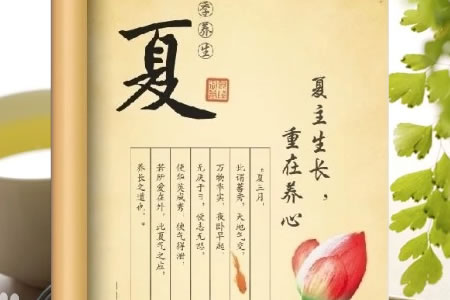 季养生
夏
夏主生长，
重在养心
“夏三月，
此谓蕃秀，天地气交，
万物华实，夜卧早起，
无厌于日，使志无怒，
使华英成秀，使气得泄，
若所爱在外，此夏气之应，
养长之道也。”